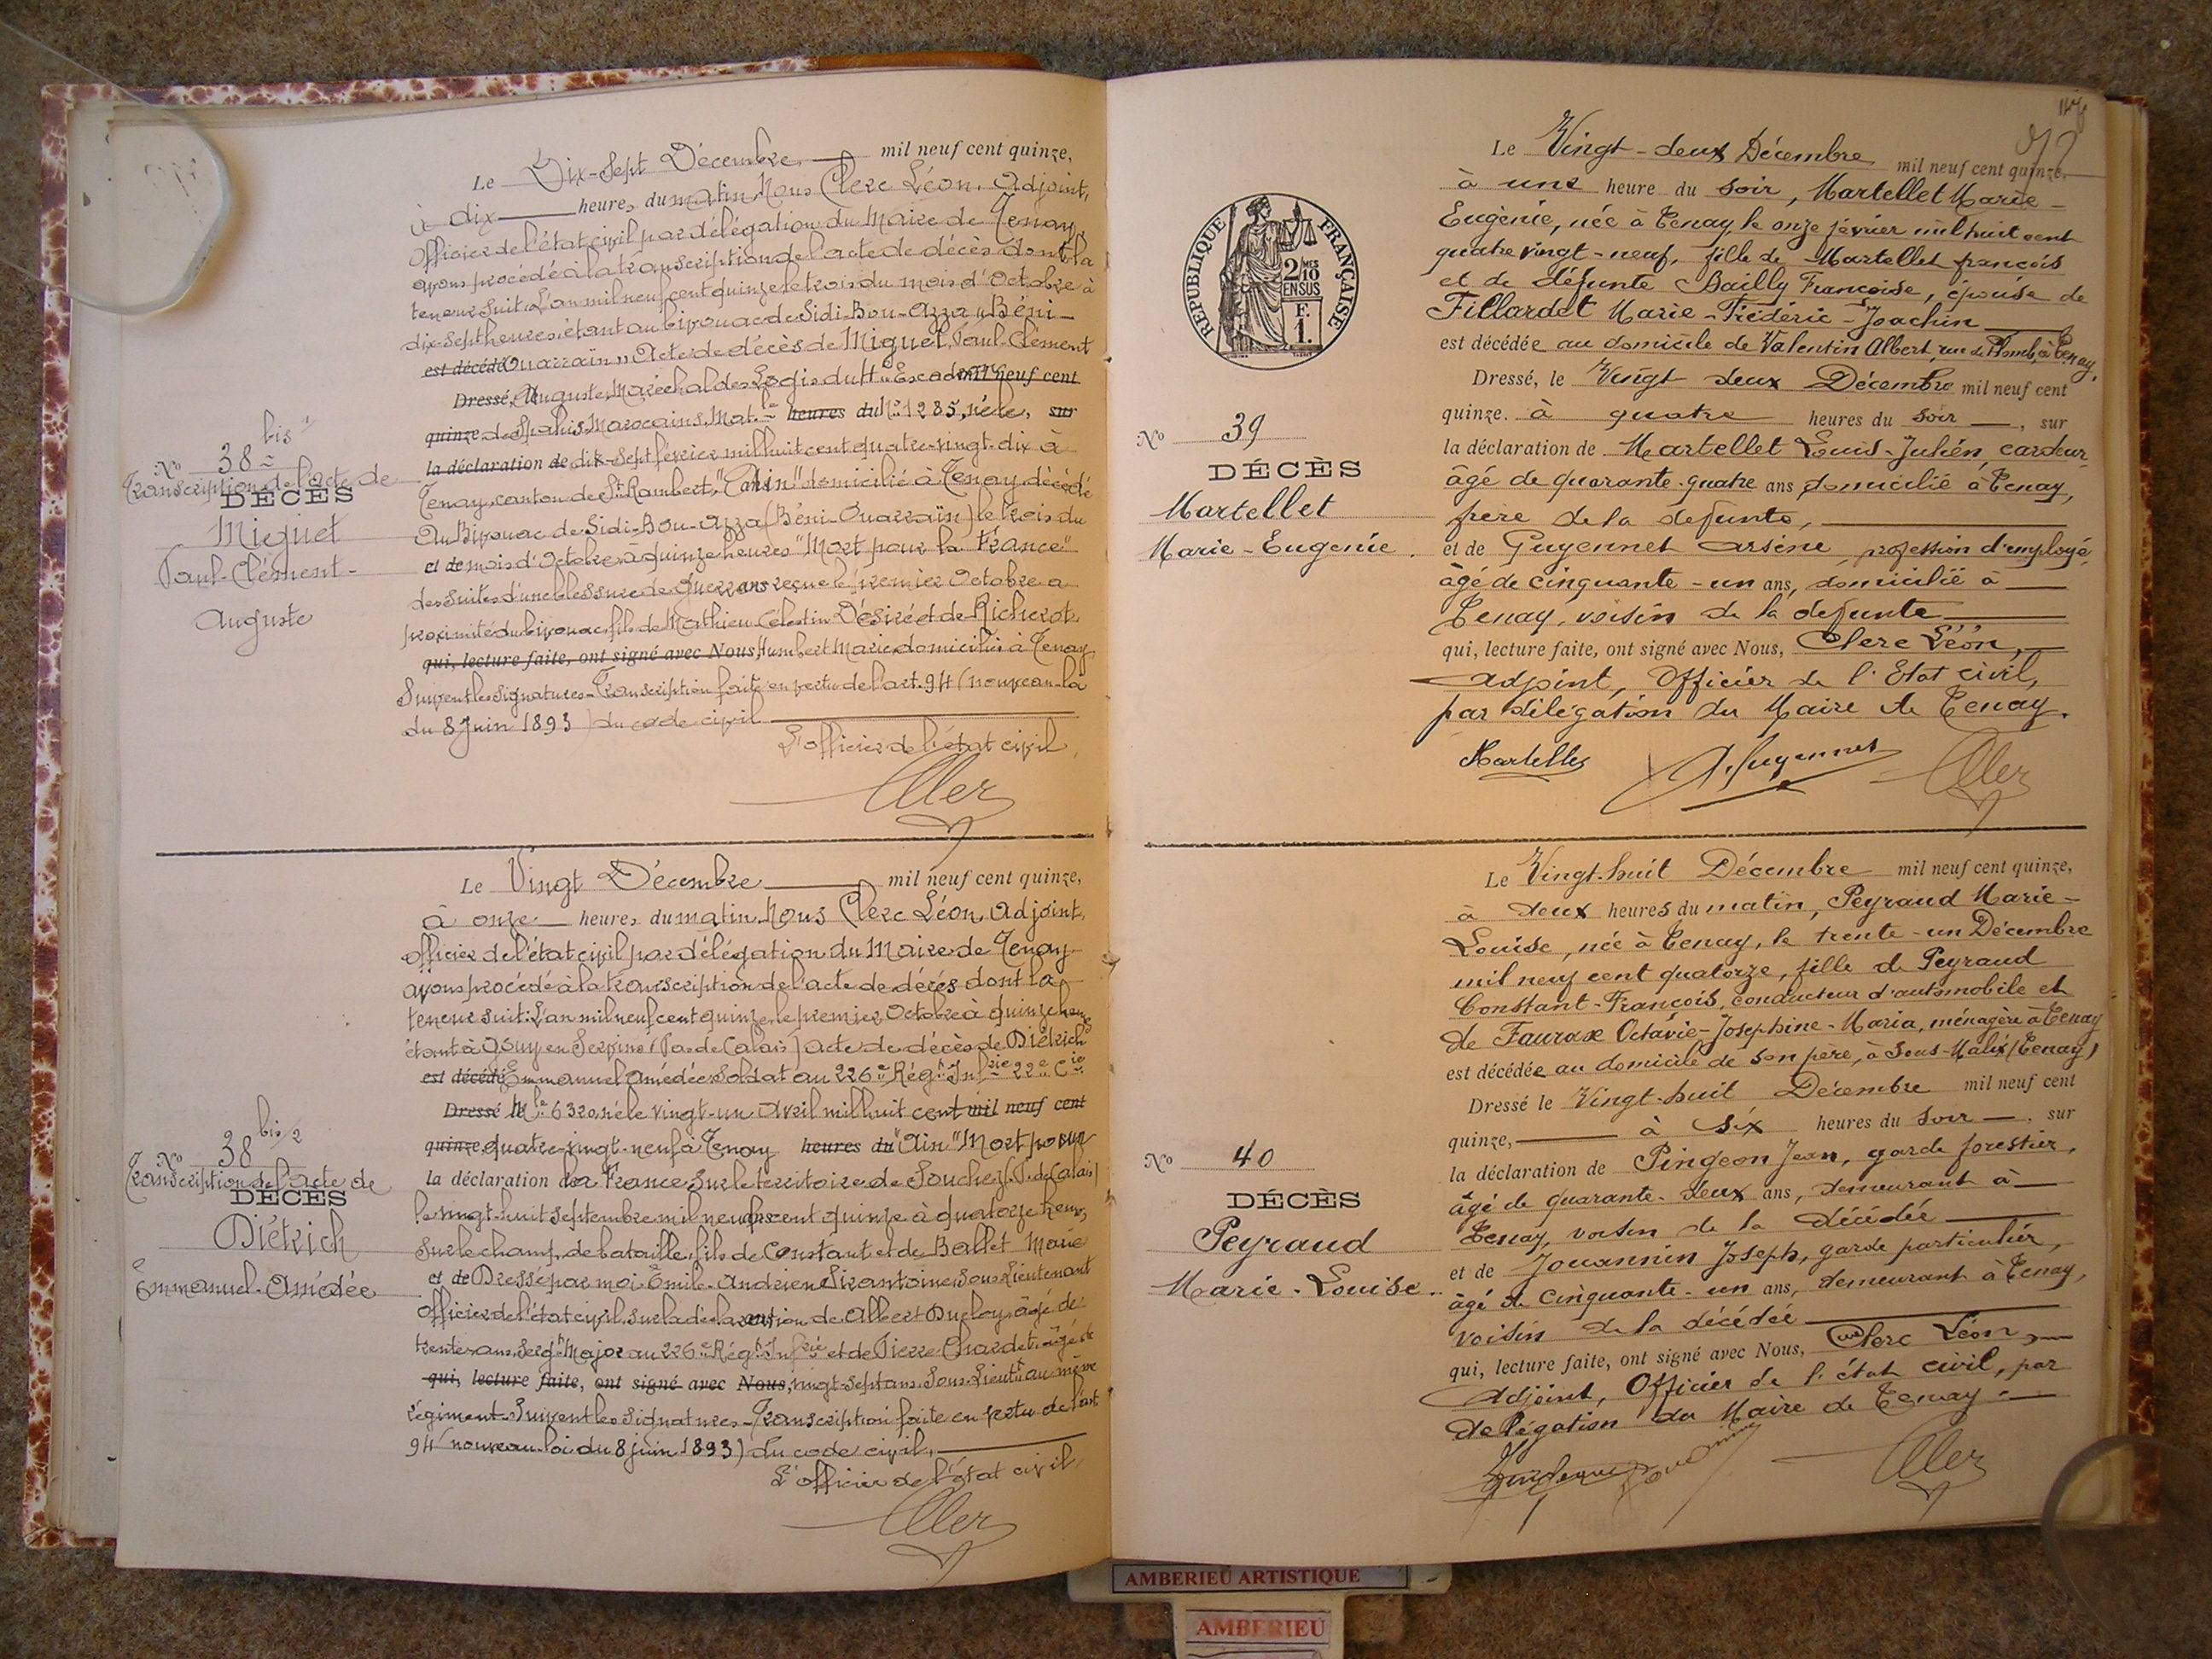 Le Dix-Sept Décembre mil neuf cent quinze,
à dix heures du matin Nous Clerc Léon, Adjoint,
Officier de l'état civil par délégation du Maire de Tenay,
avons procédé à la transcription de l'acte de décès dont la
teneur suit. L'an mil neuf cent quinze le trois du mois d'Octobre à
dix-sept heures étant au bivouac de Sidi-Bou-Azza "Béni-
est décédé Ouarraïn" Acte de décès de Miguet Paul-Clément
Dressé, Auguste, Maréchal des Logis du Escadron mil neuf cent
quinze de Spahis Marocains, Mat. le heures du No 1285, né le, sur
la déclaration de dix-sept février mil huit cent quatre-vingt-dix à
Tenay, canton de St Rambert, "Ain" domicilié à Tenay, décédé
Au Bivouac de Sidi-Bou-Azza (Béni-Ouarraïn) le trois du
et de mois d'Octobre à quinze heures "Mort pour la France"
des suites d'une blessure de guerre ans reçue le premier Octobre à
proximité du bivouac fils de Mathieu Célestin Désiré et de Richerot
qui, lecture faite, ont signé avec Nous, Humbert Marie domiciliés à Tenay.
Suivent les signatures - Transcription faite en vertu de l'art. 94 (nouveau-la
du 8 Juin 1893) du code civil
L'officier de l'état civil,
No 38 bis
Transcription de l'acte de
DÉCÈS
Miguet
Paul-Clément-
Auguste
Le Vingt Décembre mil neuf cent quinze,
à onze heures du matin Nous Clerc Léon, Adjoint,
officier de l'état civil par délégation du Maire de Tenay
avons procédé à la transcription de l'acte de décès dont la
teneur suit: L'an mil neuf cent quinze, le premier Octobre à quinze heures
étant à Gouy en Servins (Pas de Calais) acte de décès de Diétrich
est décédé Emmanuel Amédée Soldat au 226e Régt Infrie 22e Cie
Dressé le Mle 6320, né le vingt-un Avril mil huit cent mil neuf cent
quinze quatre-vingt-neuf à Tenay heures du "Ain" Mort pour
la déclaration de la France Sur le territoire de Souchez (P. de Calais)
le vingt-huit septembre mil neuf cent quinze à quatorze heures,
sur le champ de bataille, fils de Constant et de Ballet Marie
et de Dressé par moi Emile-Andrien Sirantoine, Sous-Lieutenant
Officier de l'état civil, sur la déclaration de Albert Ducloy, âgé de
trente ans, Sergt Major au 226e Régt Infrie et de Pierre Chardet, âgé de
qui, lecture faite, ont signé avec Nous, vingt-sept ans, Sous-Lieutt au même
régiment. Suivent les signatures - Transcription faite en vertu de l'art
94 (nouveau-loi du 8 juin 1893) du code civil,
L'officier de l'état civil,
No 38 bis 2
Transcription de l'acte de
DÉCÈS
Diétrich
Emmanuel-Amédée
RÉPUBLIQUE FRANÇAISE
2/10 MES
EN SUS
F.
1.
Le Vingt-deux Décembre mil neuf cent quinze
à une heure du soir, Martellet Marie-
Eugènie, née à Tenay, le onze février mil huit cent
quatre vingt-neuf, fille de Martellet françois
et de défunte Bailly Françoise, épouse de
Fillardet Marie-Fréderic-Joachin
est décédée au domicile de Valentin Albert, rue du Plomb, à Tenay,
Dressé, le Vingt deux Décembre mil neuf cent
quinze. à quatre heures du soir, sur
la déclaration de Martellet Louis-Julien, cardeur,
âgé de quarante-quatre ans domicilié à Tenay,
frère de la défunte,
et de Guyennet Arséne, profession d'employé,
âgé de cinquante-un ans, domicilié à
Tenay, voisin de la defunte
qui, lecture faite, ont signé avec Nous, Clerc Léon,
Adjoint, Officier de l'Etat civil,
par délégation du Maire de Tenay.
Martellet A. Guyennet
No 39
DÉCÈS
Martellet
Marie-Eugenie.
Le Vingt-huit Décembre mil neuf cent quinze,
à deux heures du matin, Peyraud Marie-
Louise, née à Tenay, le trente-un Décembre
mil neuf cent quatorze, fille de Peyraud
Constant-François, conducteur d'automobile et
de Faurax Octavie-Josephine-Maria, ménagère à Tenay
est décédée au domicile de son père, à Sous-Malix (Tenay)
Dressé le Vingt-huit Décembre mil neuf cent
quinze, à six heures du soir, sur
la déclaration de Pingeon Jean, garde forestier,
âgé de quarante-deux ans, demeurant à
Tenay, voisin de la décédée
et de Jouannin Joseph, garde particulier,
âgé de cinquante-un ans, demeurant à Tenay,
voisin de la décédée
qui, lecture faite, ont signé avec Nous, Clerc Léon,
Adjoint, Officier de l'état civil, par
délégation du Maire de Tenay.
No 40
DÉCÈS
Peyraud
Marie-Louise.
AMBERIEU ARTISTIQUE
AMBERIEU